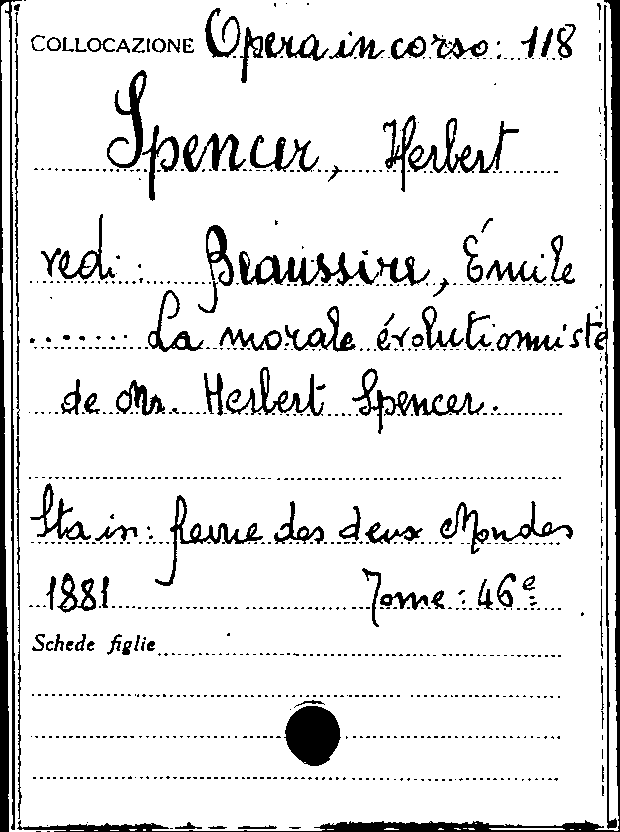 COLLOCAZIONE Opera in corso: 118
Spencer, Herbert
vedi: Beaussire, Émile
....... La morale évolutionniste
de Mr. Herbert Spencer.
Sta in: Revue des deux Mondes
1881 Tome: 46e
Schede figlie